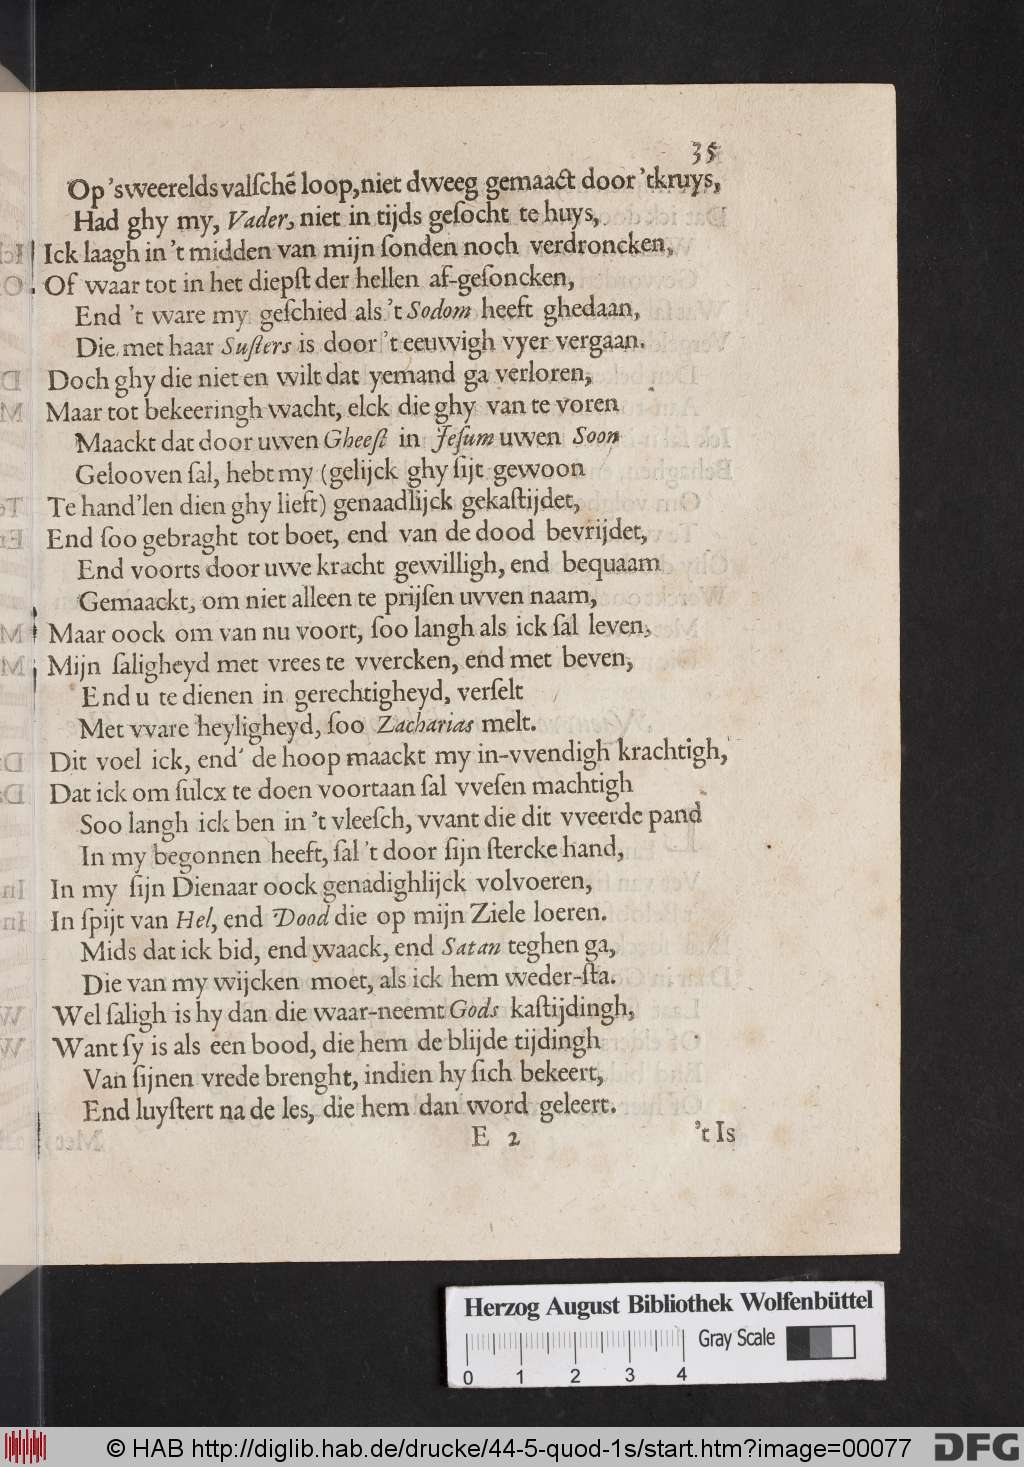 35
Op 'sweerelds valſchē loop, niet dweeg gemaact door 'tkruys,
Had ghy my, Vader, niet in tijds geſocht te huys,
Ick laagh in 't midden van mijn ſonden noch verdroncken,
Of waar tot in het diepſt der hellen af-geſoncken,
End 't ware my geſchied als 't Sodom heeft ghedaan,
Die met haar Suſters is door 't eeuwigh vyer vergaan.
Doch ghy die niet en wilt dat yemand ga verloren,
Maar tot bekeeringh wacht, elck die ghy van te voren
Maackt dat door uwen Gheeſt in Jeſum uwen Soon
Gelooven ſal, hebt my (gelijck ghy ſijt gewoon
Te hand'len dien ghy lieft) genaadlijck gekaſtijdet,
End ſoo gebraght tot boet, end van de dood bevrijdet,
End voorts door uwe kracht gewilligh, end bequaam
Gemaackt, om niet alleen te prijſen uvven naam,
Maar oock om van nu voort, ſoo langh als ick ſal leven,
Mijn ſaligheyd met vrees te vvercken, end met beven,
End u te dienen in gerechtigheyd, verſelt
Met vvare heyligheyd, ſoo Zacharias melt.
Dit voel ick, end' de hoop maackt my in-vvendigh krachtigh,
Dat ick om ſulcx te doen voortaan ſal vveſen machtigh
Soo langh ick ben in 't vleeſch, vvant die dit vveerde pand
In my begonnen heeft, ſal 't door ſijn ſtercke hand,
In my ſijn Dienaar oock genadighlijck volvoeren,
In ſpijt van Hel, end Dood die op mijn Ziele loeren.
Mids dat ick bid, end waack, end Satan teghen ga,
Die van my wijcken moet, als ick hem weder-ſta.
Wel ſaligh is hy dan die waar-neemt Gods kaſtijdingh,
Want ſy is als een bood, die hem de blijde tijdingh
Van ſijnen vrede brenght, indien hy ſich bekeert,
End luyſtert na de les, die hem dan word geleert.
E 2 't Is
Herzog August Bibliothek Wolfenbüttel
Gray Scale
0 1 2 3 4
© HAB http://diglib.hab.de/drucke/44-5-quod-1s/start.htm?image=00077
DFG